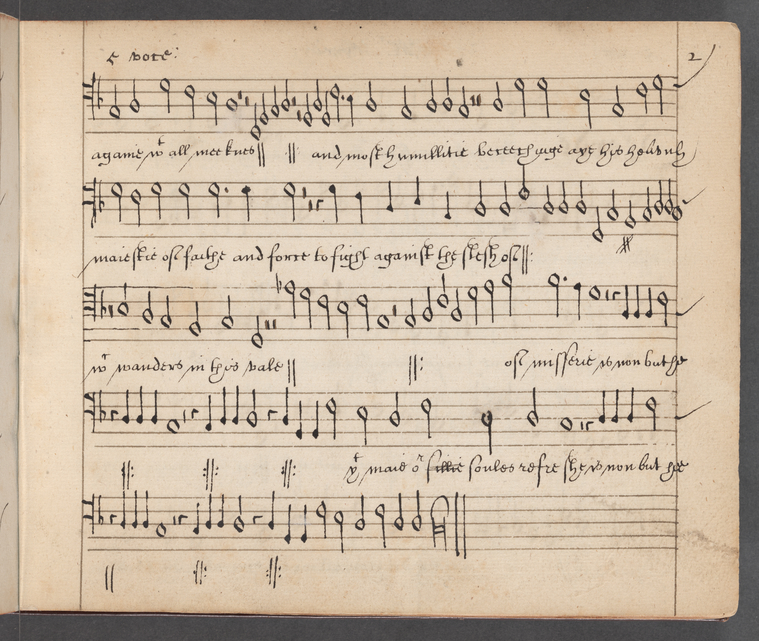 5 voce: 2
againe wt all meeknes || || and most humillitie beseech
maiestie of faithe and force to fight against the flesh of ||:
wt wanders in this vale || ||: of misserie is non but he
:||: :||: :||: yt maid or sillie soules refreshe is non but he
|| :||: :||: